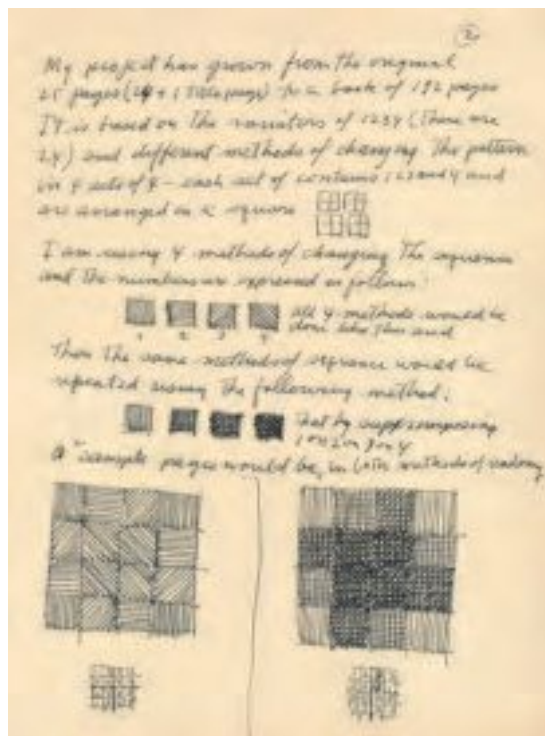 2
My project has grown from the original
25 pages (24 + 1 title page) to a book of 192 pages
It is based on the variations of 1234 (there are
24) and different methods of changing the pattern
in 4 sets of 4 - each set of contains 1 2 3 and 4 and
are arranged in a square
I am using 4 methods of changing the sequence
and the numbers are expressed as follows:
all 4 methods would be
1 2 3 4 done like this and
Then the same methods of sequence would be
repeated using the following method:
that by superimposing
1 on 2 on 3 on 4
A sample pages would be, in both methods of